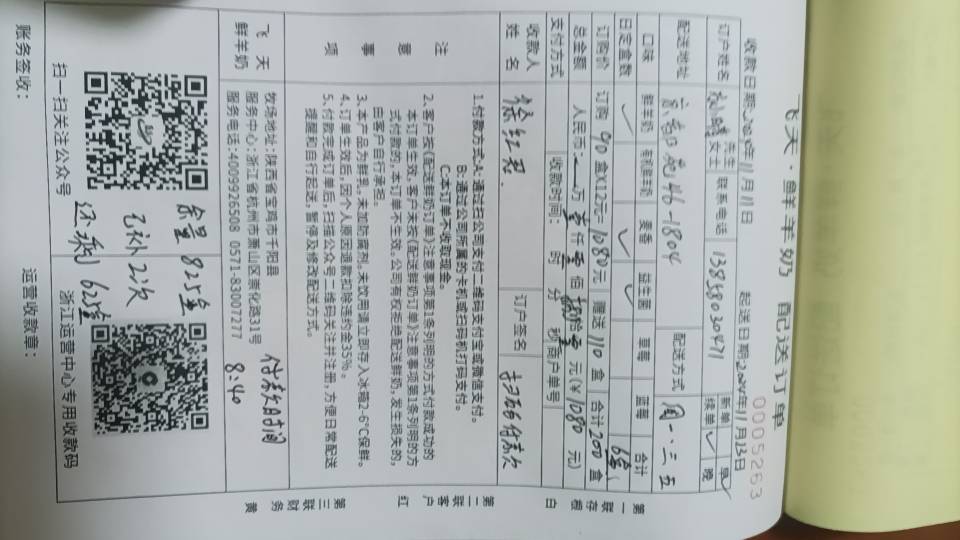 飞天·鲜羊奶 配送订单
0005263
收款日期:2024年11月11日 起送日期:2024年11月13日
订户姓名 先生 女士 联系电话 13858030471 新单 续单✓ 早✓ 晚
配送地址 46-1804 配送方式 周一.二.三.五
口味 鲜羊奶 有机鲜羊奶 麦香 益生菌 草莓 蓝莓 合计
日定盒数 ✓ ✓ ✓
订购价 订购 90 盒X12元=1080元 赠送 110 盒 合计 200 盒
总金额 人民币: 万 壹 仟 零 佰 捌 拾 零 元(¥ 1080 元)
支付方式 收款时间: 时 分 秒 商户单号
收款人姓名 徐红君 订户签名 扫码付款
注意事项
1.付款方式:A:通过扫公司支付二维码支付宝或微信支付。
B:通过公司所属的卡机或扫码机打码支付。
C:本订单不收取现金。
2.客户按《配送鲜奶订单》注意事项第1条列明的方式付款成功的
本订单生效,客户未按《配送鲜奶订单》注意事项第1条列明的方
式付款的,本订单不生效。公司有权拒绝配送鲜奶,发生损失的,
由客户自行承担。
3.本产品为鲜乳,未加防腐剂。未饮用请立即存入冰箱2-6℃保鲜。
4.订单生效后,因个人原因退款扣除违约金35%。
5.付款完成订单后,扫描公众号二维码关注并注册,方便日常配送
提醒和自行起送,暂停及修改配送方式。
飞天鲜羊奶
牧场地址:陕西省宝鸡市千阳县
服务中心:浙江省杭州市萧山区崇化路31号
服务电话:4009926508 0571-83007277
付款时间
8:40
余量 82盒
2次
还剩 62盒
扫一扫关注公众号 浙江运营中心专用收款码
账务签收: 运营收款章:
第一联存根 白
第二联客户 红
第三联财务 黄